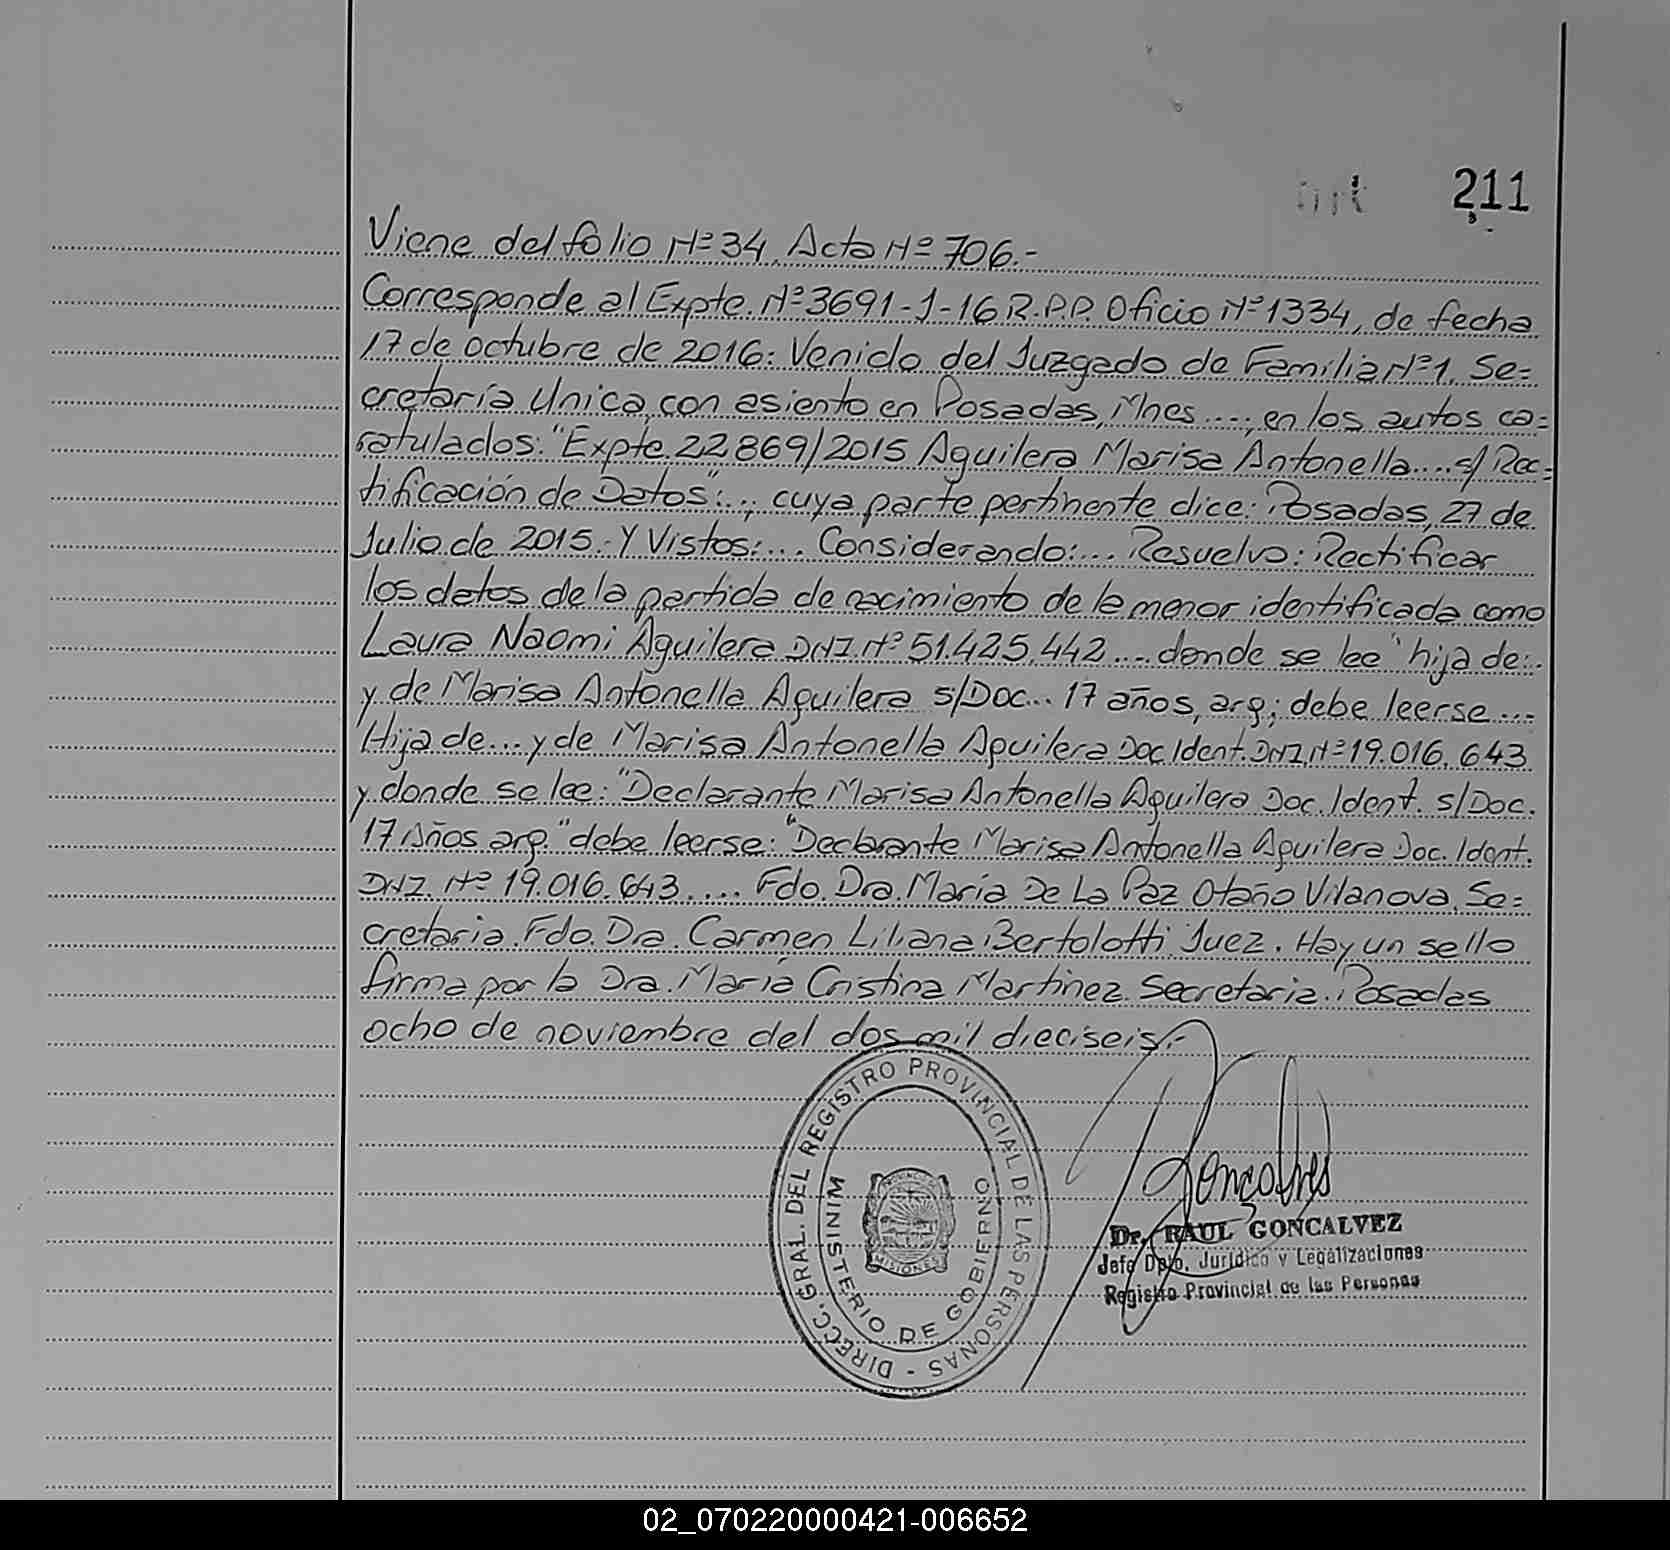 211
Viene del folio Nº 34, Acta Nº 706.-
Corresponde al Expte. Nº 3691-J-16 R.P.P. Oficio Nº 1334, de fecha
17 de octubre de 2016: Venido del Juzgado de Familia Nº 1, Se=
cretaría Unica, con asiento en Posadas, Mnes...., en los autos ca=
ratulados: "Expte. 22869/2015 Aguilera Marisa Antonella.... s/ Rec=
tificación de Datos":..., cuya parte pertinente dice: Posadas, 27 de
Julio de 2015.- Y Vistos:... Considerando:... Resuelvo: Rectificar
los datos de la partida de nacimiento de la menor identificada como
Laura Naomi Aguilera DNI. Nº 51.425.442.... donde se lee "hija de:.
y de Marisa Antonella Aguilera s/Doc... 17 años, arg; debe leerse...
Hija de... y de Marisa Antonella Aguilera Doc Ident. DNI. Nº 19.016.643
y donde se lee: "Declarante Marisa Antonella Aguilera Doc. Ident. s/Doc.
17 Años arg." debe leerse: "Declarante Marisa Antonella Aguilera Doc. Ident.
DNI. Nº 19.016.643.... Fdo. Dra. María De La Paz Otaño Vilanova. Se=
cretaria. Fdo. Dra. Carmen Liliana Bertolotti Juez. Hay un sello
firma por la Dra. María Cristina Martinez. Secretaria. Posadas
ocho de noviembre del dos mil dieciseis.-
DIRECC. GRAL. DEL REGISTRO PROVINCIAL DE LAS PERSONAS -
MINISTERIO DE GOBIERNO
MISIONES
Goncalves
Dr. RAUL GONCALVEZ
Jefe Dpto. Jurídico y Legalizaciones
Registro Provincial de las Personas
02_070220000421-006652